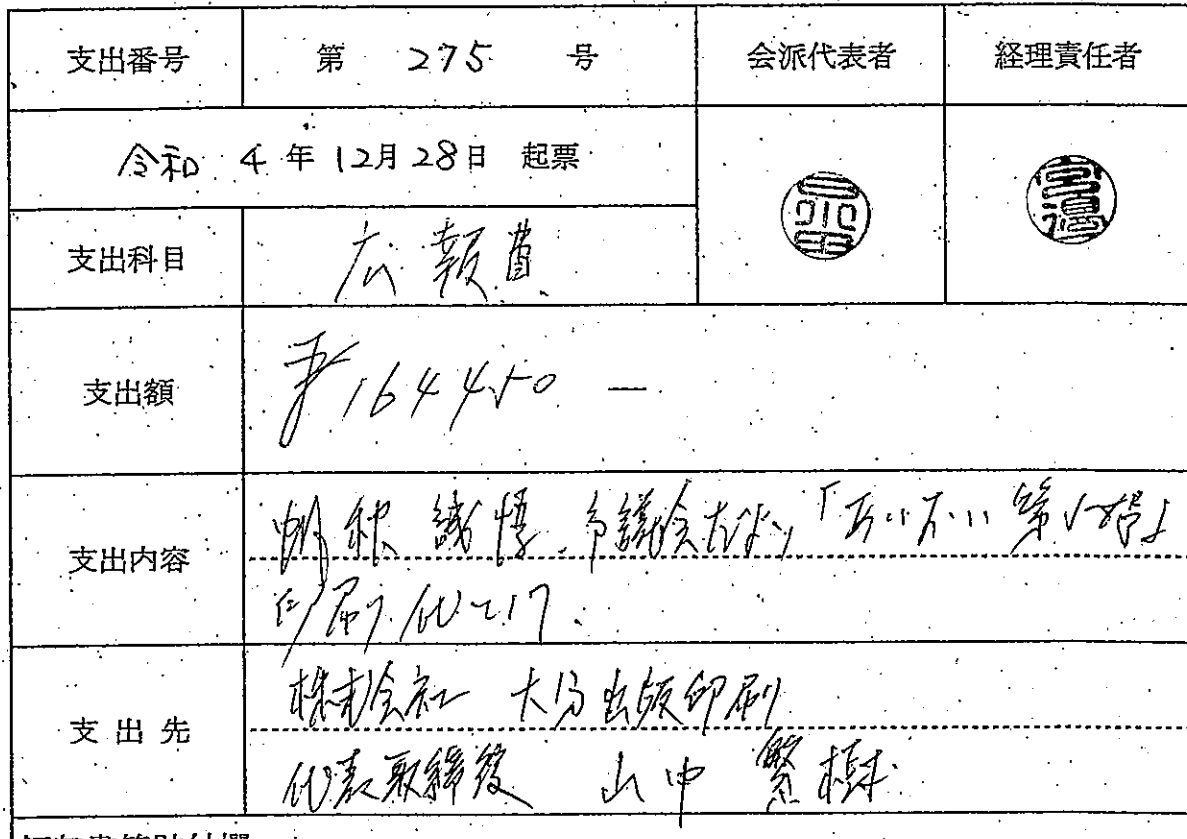 支出番号 第 275 号 会派代表者 経理責任者
令和 4 年 12月 28日 起票
支出科目 広報費
支出額 ¥164450 —
支出内容 帆秋 誠悟 市議会だより「 第 号」
印刷代として
支出先 株式会社 大分出版印刷
代表取締役 山中 繁樹